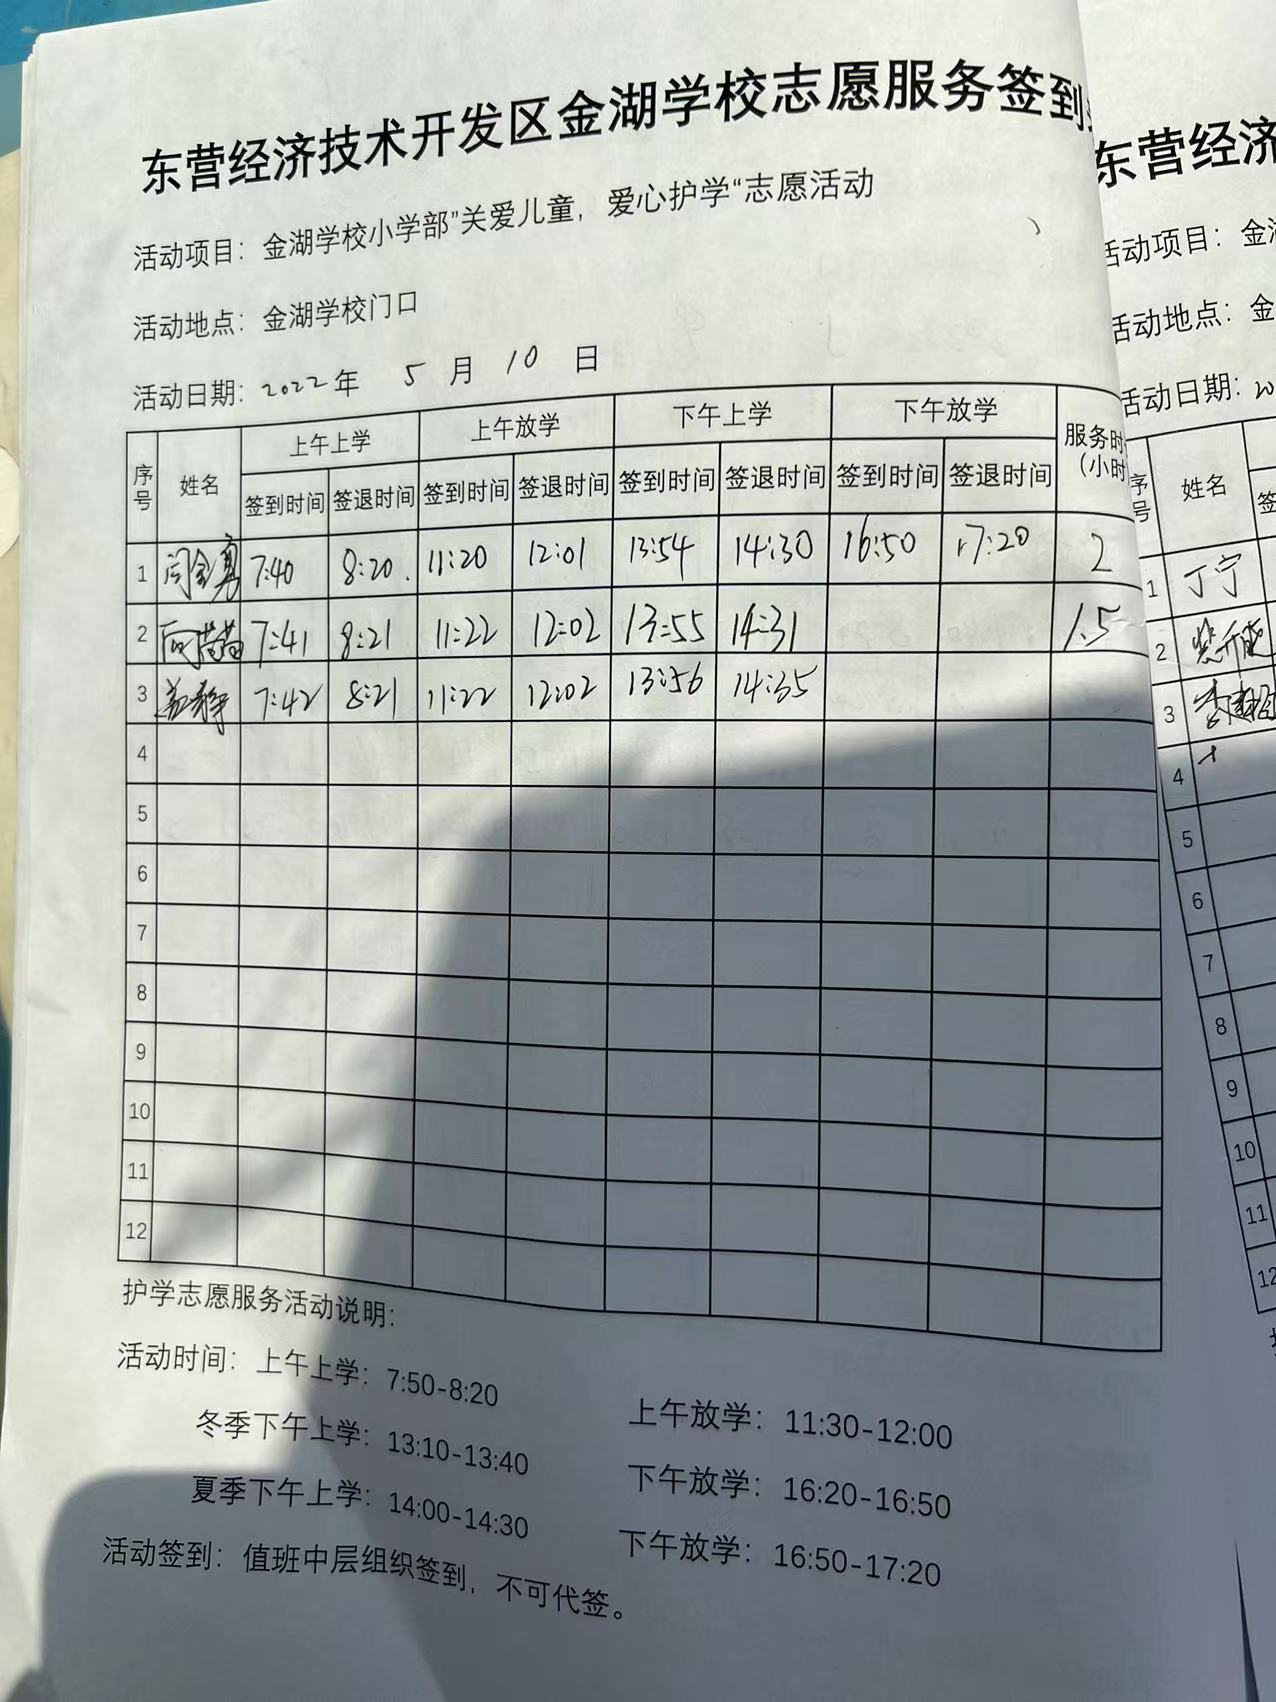 东营经济技术开发区金湖学校志愿服务签到
活动项目：金湖学校小学部”关爱儿童，爱心护学“志愿活动
活动地点：金湖学校门口
活动日期：2022年 5 月 10 日
序号 姓名 上午上学 上午放学 下午上学 下午放学 服务时
（小时
签到时间 签退时间 签到时间 签退时间 签到时间 签退时间 签到时间 签退时间
1 7:40 8:20 11:20 12:01 13:54 14:30 16:50 17:20 2
2 7:41 8:21 11:22 12:02 13:55 14:31 1.5
3 盖静 7:42 8:21 11:22 12:02 13:56 14:35
4
5
6
7
8
9
10
11
12
护学志愿服务活动说明：
活动时间：上午上学：7:50-8:20 上午放学：11:30-12:00
冬季下午上学：13:10-13:40 下午放学：16:20-16:50
夏季下午上学：14:00-14:30 下午放学：16:50-17:20
活动签到：值班中层组织签到，不可代签。
东营经济
活动项目：金
活动地点：金
活动日期：20
序号 姓名
签
1 丁宁
2
3
4
5
6
7
8
9
10
11
12